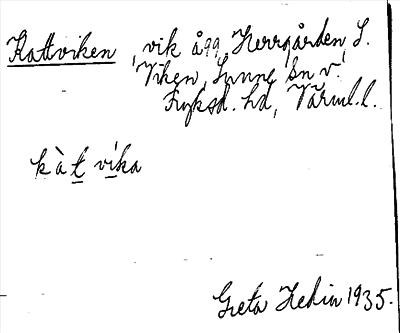 Kattviken, vik å ägg. Herrgården, S.
Viken, Sunne sn v.
Fryksd. hd, Värml. l.
kàt víka
Greta Hedin 1935.